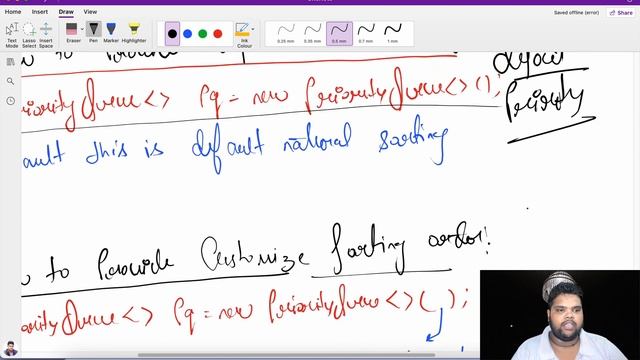 Home Insert Draw View
Saved offline (error)
Share
Text Mode Lasso Select Insert Space Eraser Pen Marker Highlighter Ink Colour 0.25 mm 0.35 mm 0.5 mm 0.7 mm 1 mm
to Provide
default
Priority
iorityQueue<> Pq = new PriorityQueue<>();
ault this is default national sorting
to Provide Customize Sorting order:
orityQueue<> Pq = new PriorityQueue<>( );